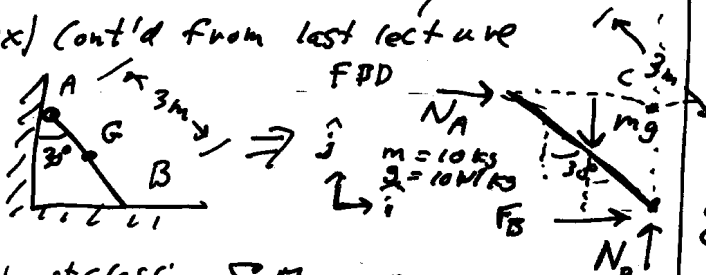 x) Cont'd from last lecture
FBD
A
3m
G
30°
B
⇒
ĵ
î
N_A
m = 10 kg
g = 10 N/kg
C
3m
mg
30°
F_B
N_B